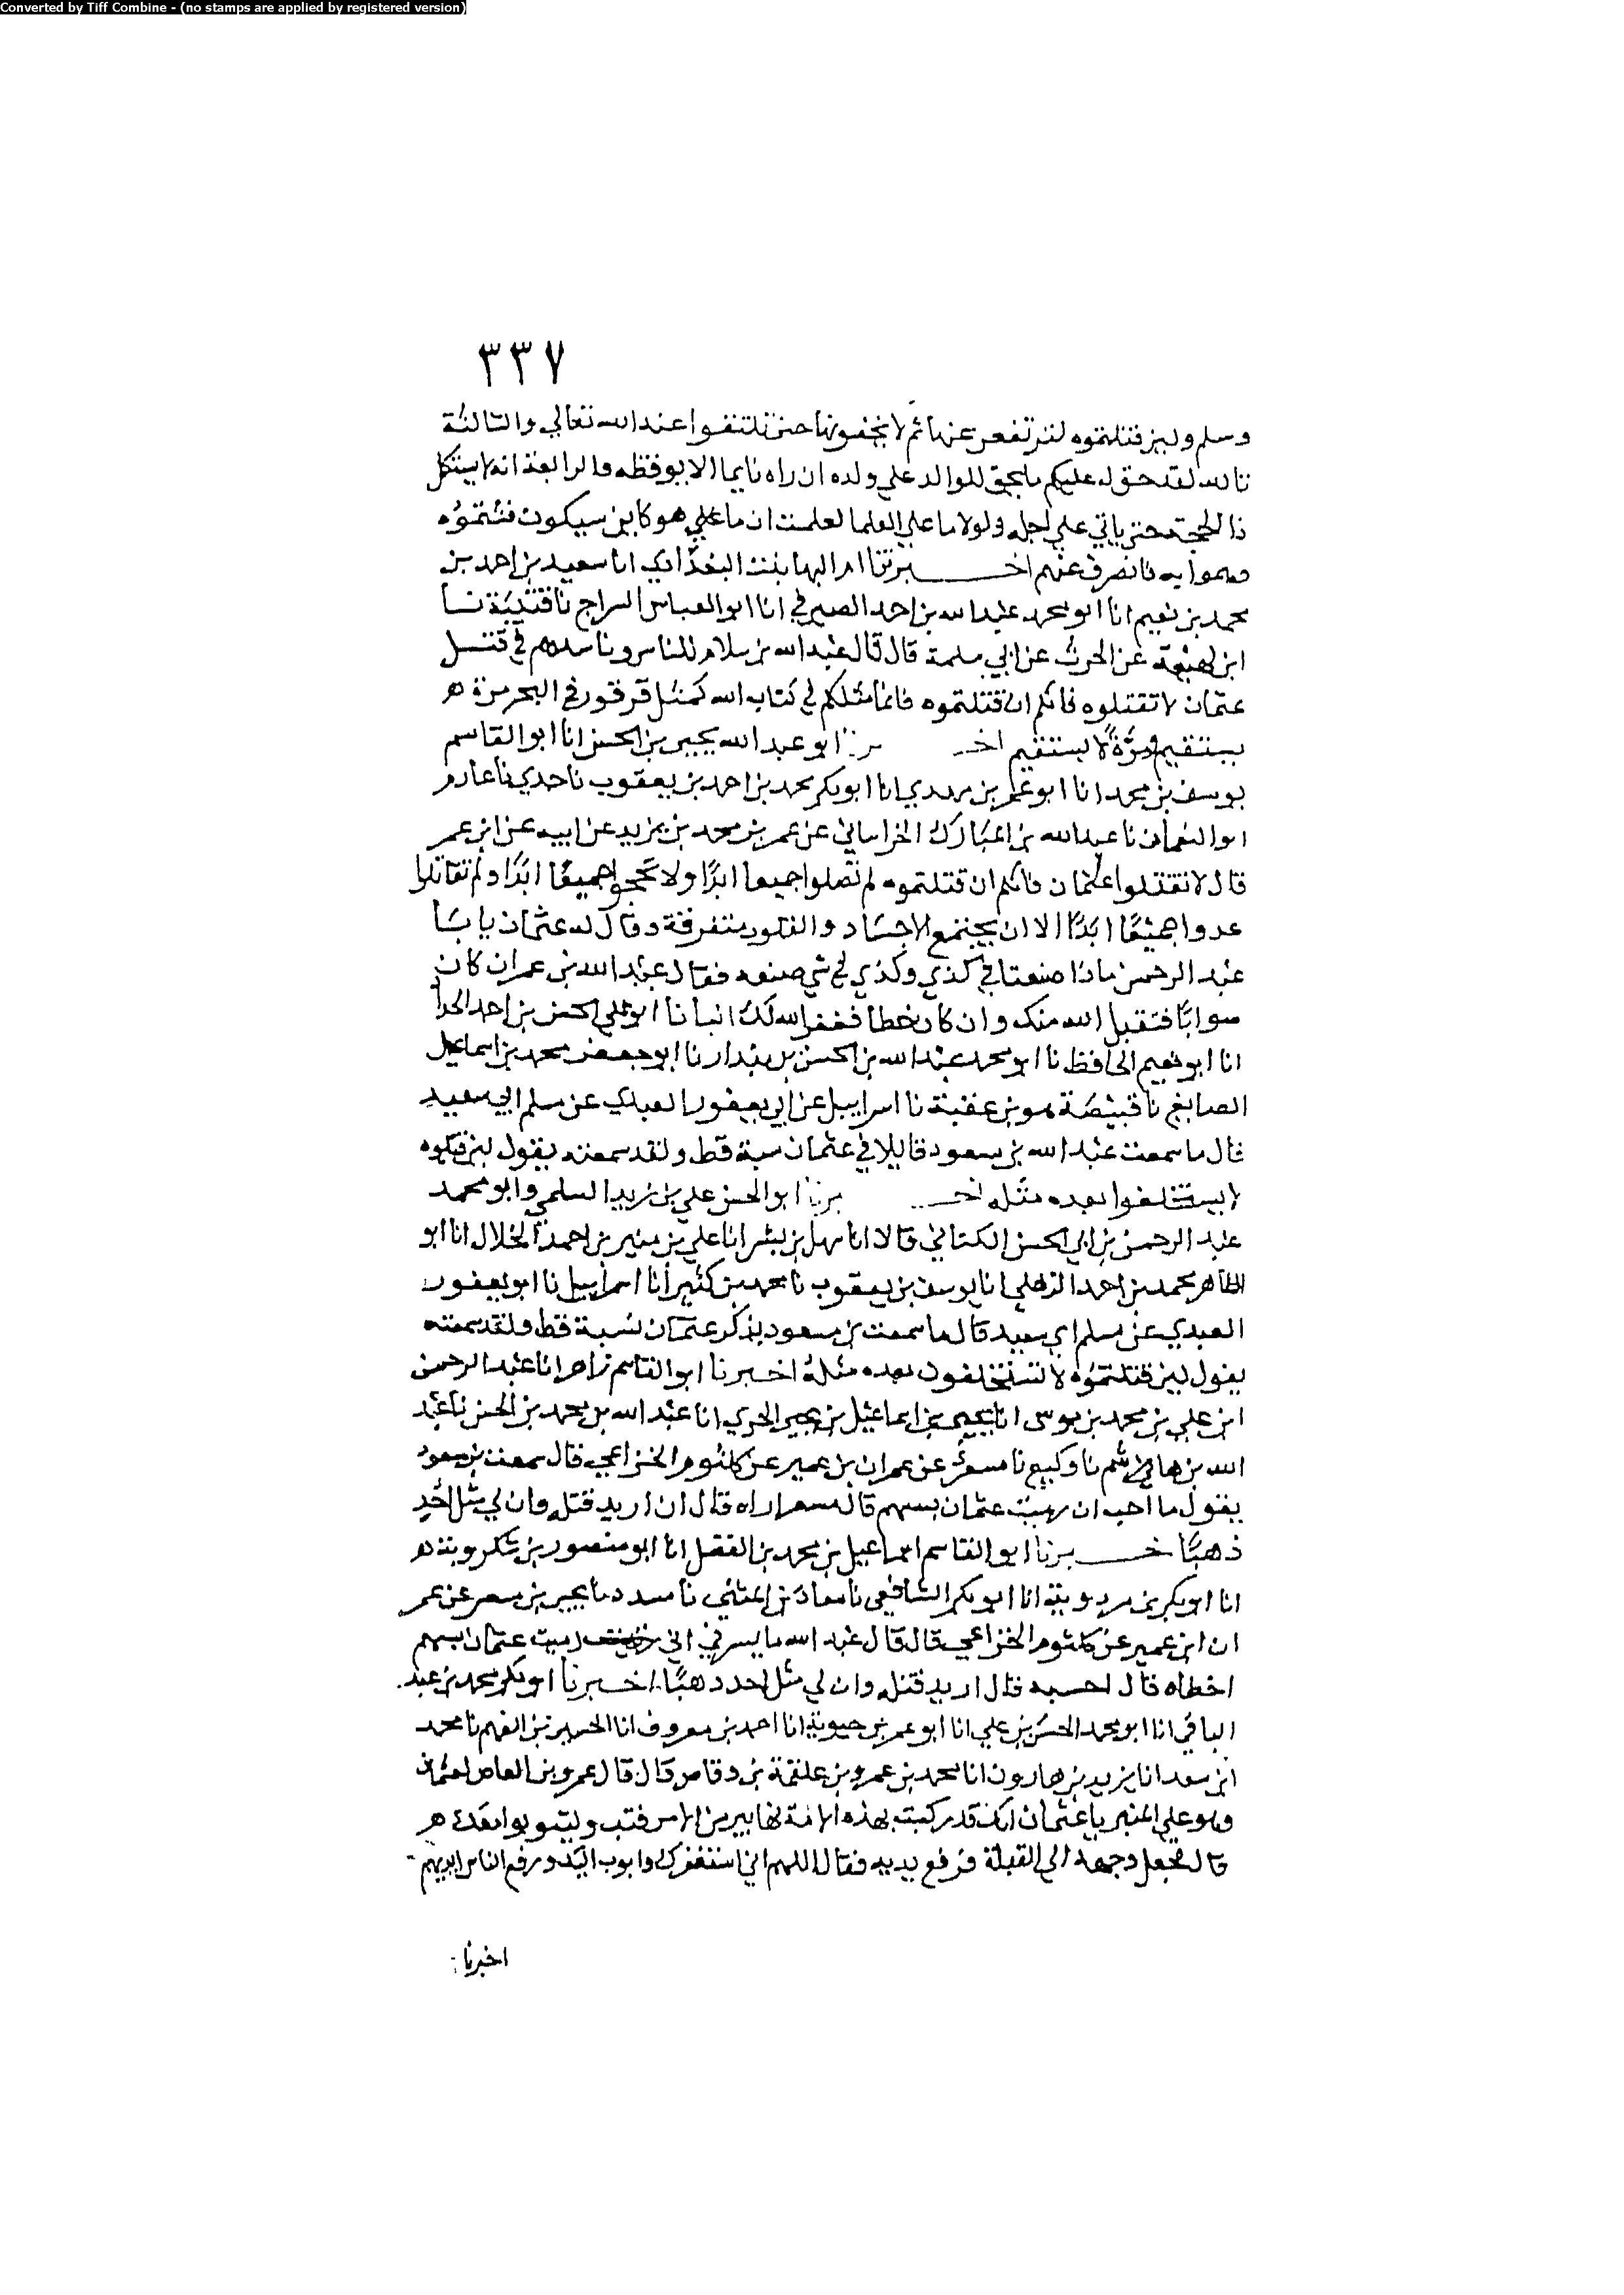 Converted by Tiff Combine - (no stamps are applied by registered version)
٣٣٧
وسلم ولين قتلتموه لترتفعن عنها ثم لا يخفونها حتى تلتقوا عند الله تعالي والثالثة
تالله لقد حق له عليكم ما يحق للوالد علي ولده ان راه نايما الا يوقظه والرابعة انه لا يستكمل
ذا الحجة حتى ياتي علي اجله ولولا ما علي العلما لعلمت ان ما علي هو كاين سيكون فشتموه
وهموا به فانصرف عنهم اخـــبرتنا ام البها بنت البغدادي انا سعيد بن احمد بن
محمد بن نعيم انا ابو محمد عبد الله بن احمد الصيرفي انا ابو العباس السراج نا قتيبة نا
ابن لهيعة عن الحرث عن ابي سلمة قال قال عبد الله بن سلام للناس وناشدهم في قتــل
عثمان لا تقتلوه فانكم ان قتلتموه فانما مثلكم في كتاب الله كمثل قرقور في البحر مرة ه
يستقيم ومرّةً لا يستقيم اخـ برنا ابو عبد الله يحيى بن الحسن انا ابو القاسم
يوسف بن محمد انا ابو عمر بن مهدي انا ابو بكر محمد بن احمد بن يعقوب نا جدي نا عارم
ابو النعمان نا عبد الله بن المبارك الخراساني عن عمر بن محمد بن يزيد عن ابيه عن ابن عمر
قال لا تقتلوا عثمان فانكم ان قتلتموه لم تصلوا جميعا ابدًا ولا تحجوا جميعًا ابدًا ولم تقاتلوا
عدوا جميعًا ابدًا الا ان يجتمع الاجساد والقلوب متفرقة وقال له عثمان يابا
عبد الرحمن ماذا صنعنا في كذي وكذي في شي صنعه فقال عبد الله بن عمران كان
صوابًا فتقبل الله منك وان كان خطا فغفر الله لك انبانا ابو علي الحسن بن احمد الحدا
انا ابو نعيم الحافظ نا ابو محمد عبد الله بن الحسن بن بندار نا ابو جعفر محمد بن اسماعيل
الصايغ نا قبيصة هو بن عقبة نا اسراييل عن ابي يعفور العبدي عن مسلم ابي سعيد
قال ما سمعت عبد الله بن مسعود قايلا في عثمان سبة قط ولقد سمعته يقول لين قتلوه
لا يستخلفوا بعده مثله اخـ برنا ابو الحسن علي بن زيد السلمي وابو محمد
عبد الرحمن بن ابي الحسن الكتاني قالا انا سهل بن بشر انا علي بن منير بن احمد الخلال انا ابو
الطاهر محمد بن احمد الذهلي انا يوسف بن يعقوب نا محمد بن كثير انا اسراييل نا ابو يعفور
العبدي عن مسلم ابي سعيد قال ما سمعت بن مسعود يذكر عثمان بسبة قط ولقد سمعته
يقول لين قتلتموه لا تستخلفون بعده مثله اخـبرنا ابو القاسم زاهر انا عبد الرحمن
ابن علي بن محمد بن موسى انا يحيى بن اسماعيل بن يحيى الحربي انا عبد الله بن محمد بن الحسن نا عبد
الله بن هاشم نا وكيع نا مسعر عن عمران بن عمير عن كلثوم الخزاعي قال سمعت بن مسعود
يقول ما احب ان رميت عثمان بسهم قال مسعر اراه قال ان اريد قتله وان لي مثل احُدٍ
ذهبًا خـــبرنا ابو القاسم اسماعيل بن محمد بن الفضل انا ابو منصور بن شكرويه ه
انا ابو بكر بن مردويه انا ابو بكر الشافعي نا معاذ بن المثنى نا مسدد نا يحيى بن مسعر عن عمر
ان ابن عمير عن كلثوم الخزاعي قال قال عبد الله ما يسرني اني رميت عثمان بسهم
اخطاه قال احسبه قال اريد قتله وان لي مثل احد ذهبًا اخـبرنا ابو بكر محمد بن عبد
الباقي انا ابو محمد الحسن بن علي انا ابو عمر بن حيوية انا احمد بن معروف انا الحسين بن الفهم نا محمد
ابن سعد انا يزيد بن هارون انا محمد بن عمرو بن علقمة بن وقاص قال قال عمرو بن العاص لعثمان
وهو علي المنبر يا عثمان انك قد ركبت بهذه الامة نهابير من الامر فتب وليتوبوا معك ه
قال فحول وجهه الى القبلة فرفع يديه فقال اللهم اني استغفرك واتوب اليك ورفع الناس ايديهم
اخبرنا